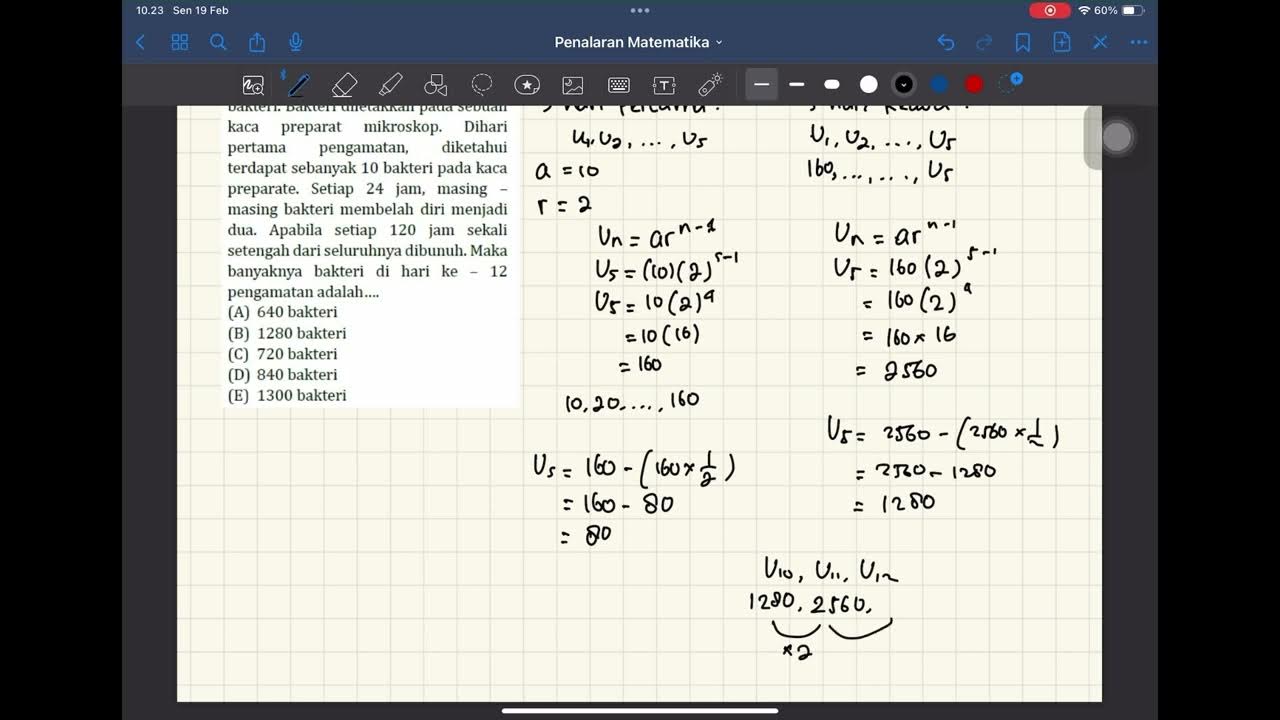 10.23 Sen 19 Feb
60%
Penalaran Matematika
bakteri. Bakteri diletakkan pada sebuah
kaca preparat mikroskop. Dihari
pertama pengamatan, diketahui
terdapat sebanyak 10 bakteri pada kaca
preparate. Setiap 24 jam, masing –
masing bakteri membelah diri menjadi
dua. Apabila setiap 120 jam sekali
setengah dari seluruhnya dibunuh. Maka
banyaknya bakteri di hari ke – 12
pengamatan adalah....
(A) 640 bakteri
(B) 1280 bakteri
(C) 720 bakteri
(D) 840 bakteri
(E) 1300 bakteri
5 hari pertama :
U₁, U₂, ..., U₅
a = 10
r = 2
Uₙ = arⁿ⁻¹
U₅ = (10)(2)⁵⁻¹
U₅ = 10(2)⁴
= 10(16)
= 160
10, 20, ...., 160
U₅ = 160 - (160 × 1/2)
= 160 - 80
= 80
5 hari kedua :
U₁, U₂, ..., U₅
160, ..., ..., U₅
Uₙ = arⁿ⁻¹
U₅ = 160(2)⁵⁻¹
= 160(2)⁴
= 160 × 16
= 2560
U₅ = 2560 - (2560 × 1/2)
= 2560 - 1280
= 1280
U₁₀, U₁₁, U₁₂
1280, 2560,
×2